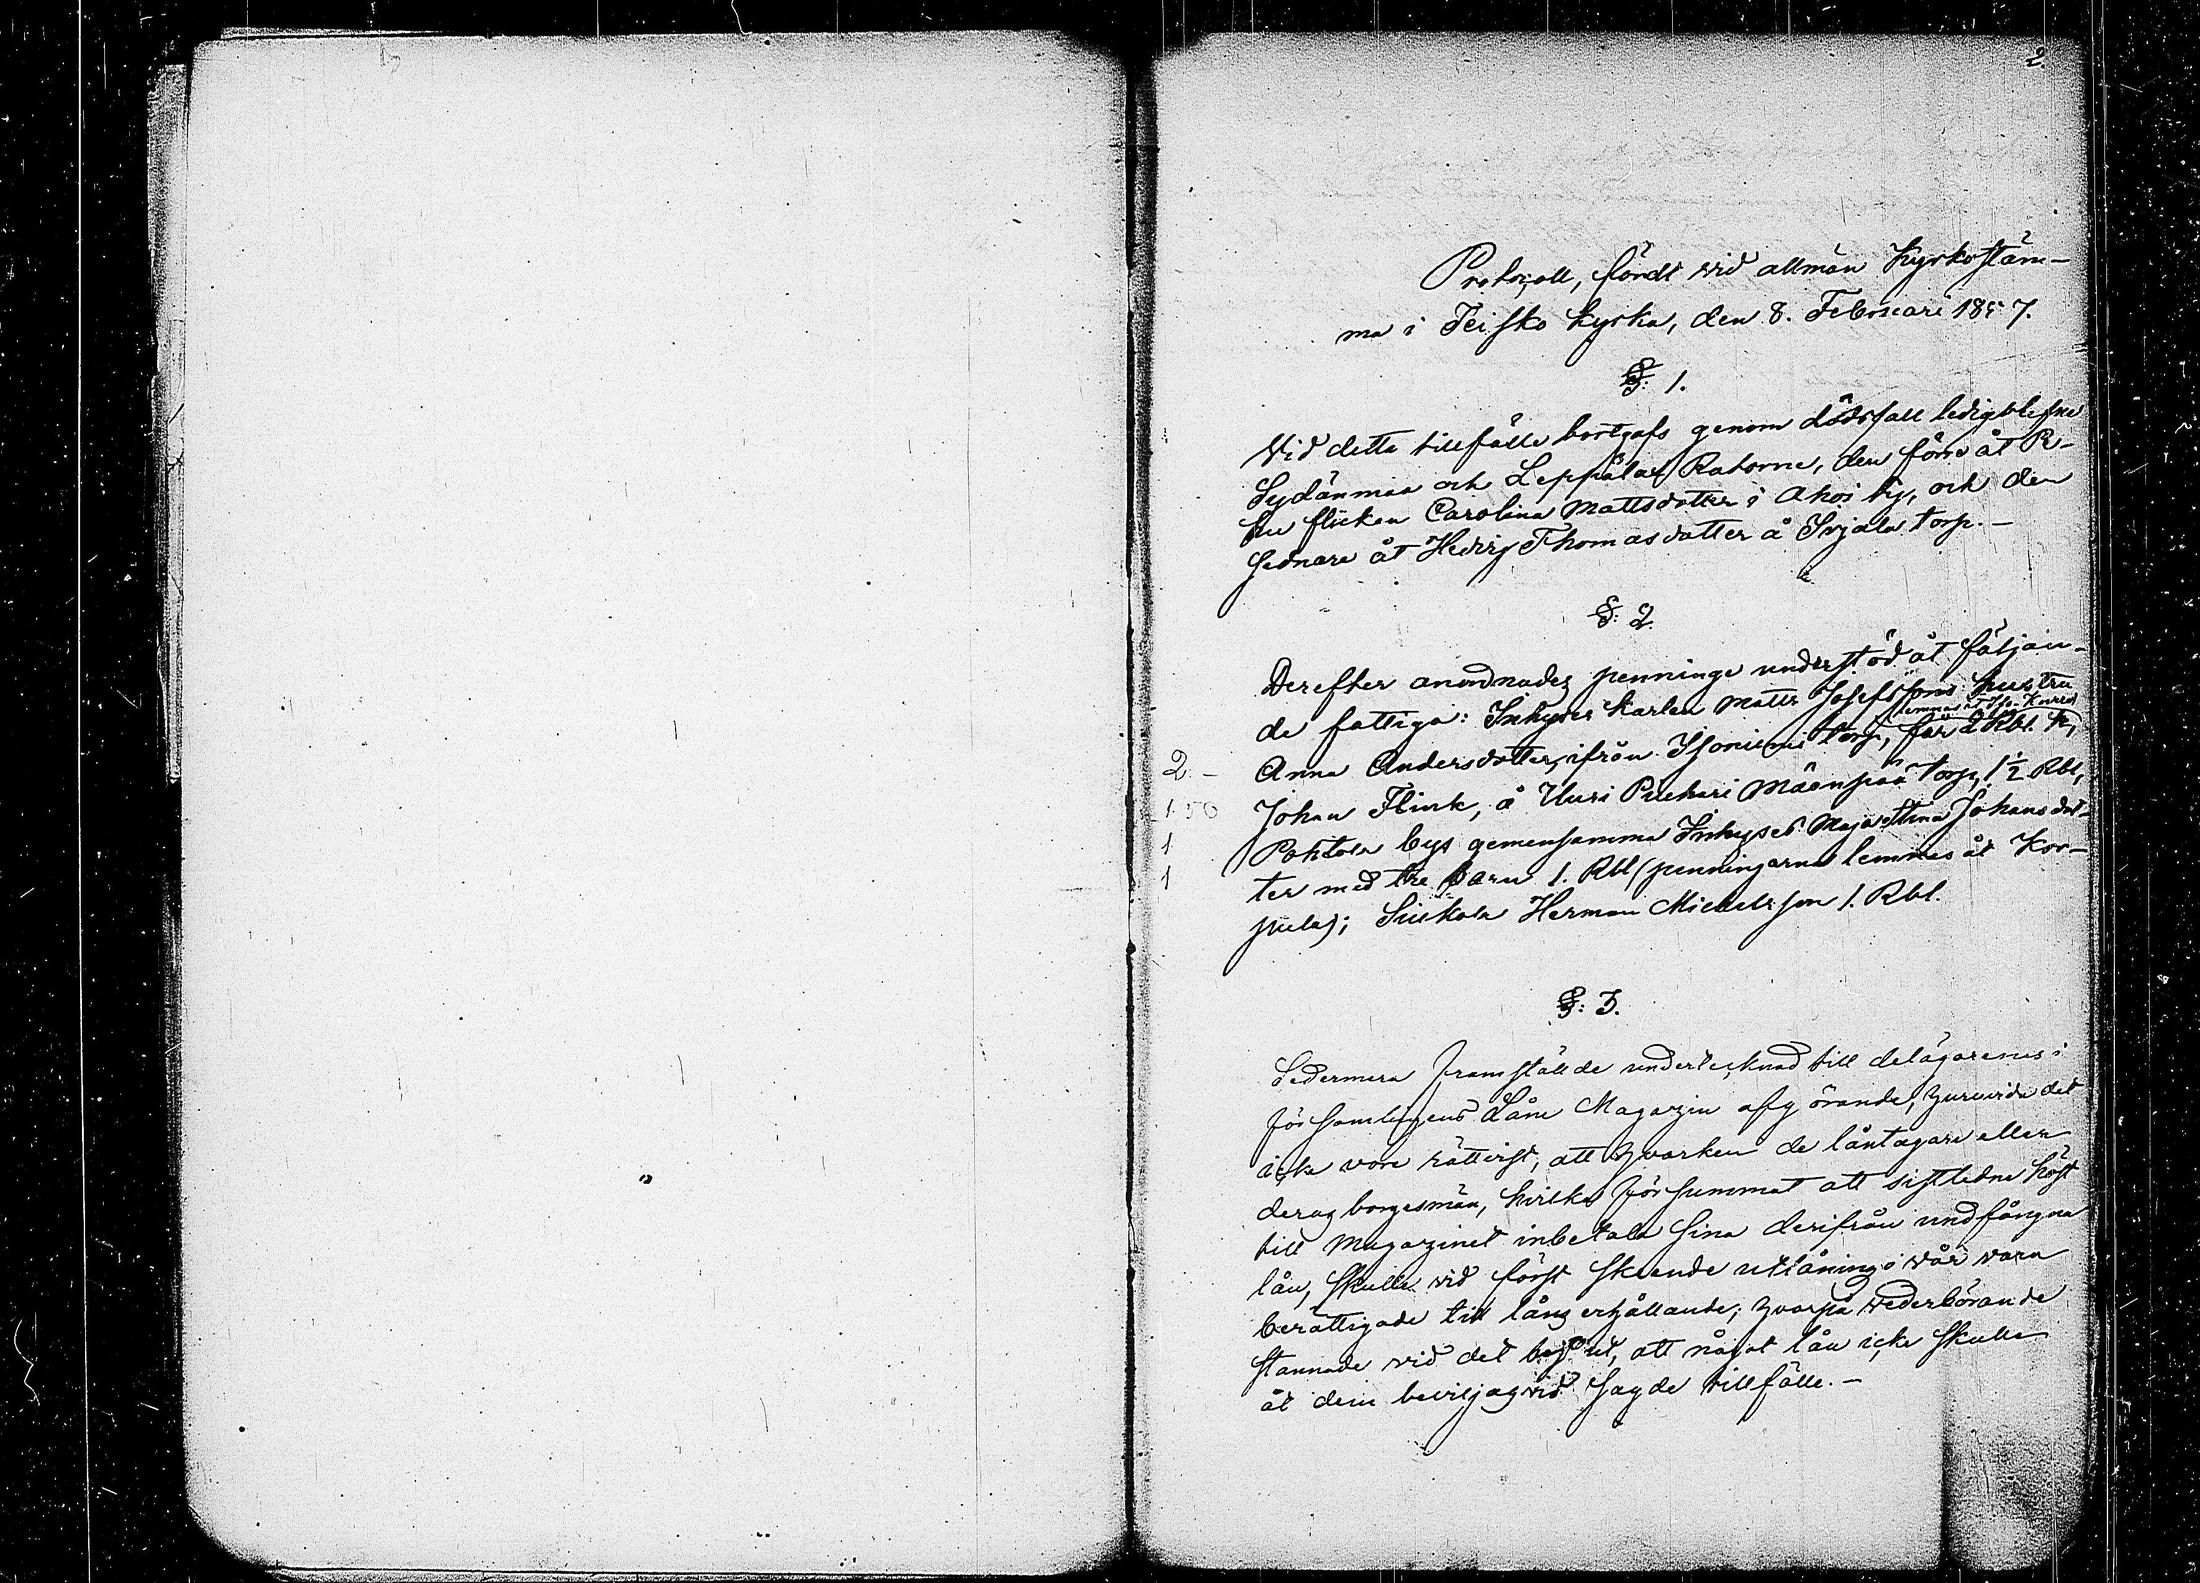 2.
Protocoll, fördt vid allmän Kyrkostäm-
ma i Teisko kyrka, den 8. Februari 1857.
§. 1.
Vid detta tillfälle bortgafs genom dödsfall ledigblefne
Sydänmaa och Leppälax Ratorne, den förra åt
flickan Carolina Mattsdotter i Ahoi by, och den
sednare åt Hedvig Thomasdotter å Irjala torp.-
§. 2.
Derefter anordnades penninge understöd åt följan-
de fattiga: Inhyses Karlen Matts Josefssons hustru
lemnas åt
2.- Anna Andersdotter, ifrån Isoniemi torp, får 2 Rbl.
1.50 Johan Flink, å Uuri Puhari Mäenpää torp, 1 1/2 Rbl,
1 Pohtola bys gemensamma Inhyses Maja Stina Johansdot-
1 ter med tre barn 1. Rbl (penningarne lemnas åt Kor-
pula); Siukola Herman Michelsson 1. Rbl.
§. 3.
Sedermera framställde undertecknad till delägarenes i
församlingens Låne Magazin afgörande, huruvida det
icke vore rättvist, att hvarken de låntagare eller
deras borgesmän, hvilka försummat att sistledne höst
till Magazinet inbetala sina derifrån undfångna
lån, skulle vid först skeende utlåning i vår vara
berättigade till låns erhållande; hvarpå vederbörande
stannade vid det beslut, att något lån icke skulle
åt dem beviljas vid sagde tillfälle.-